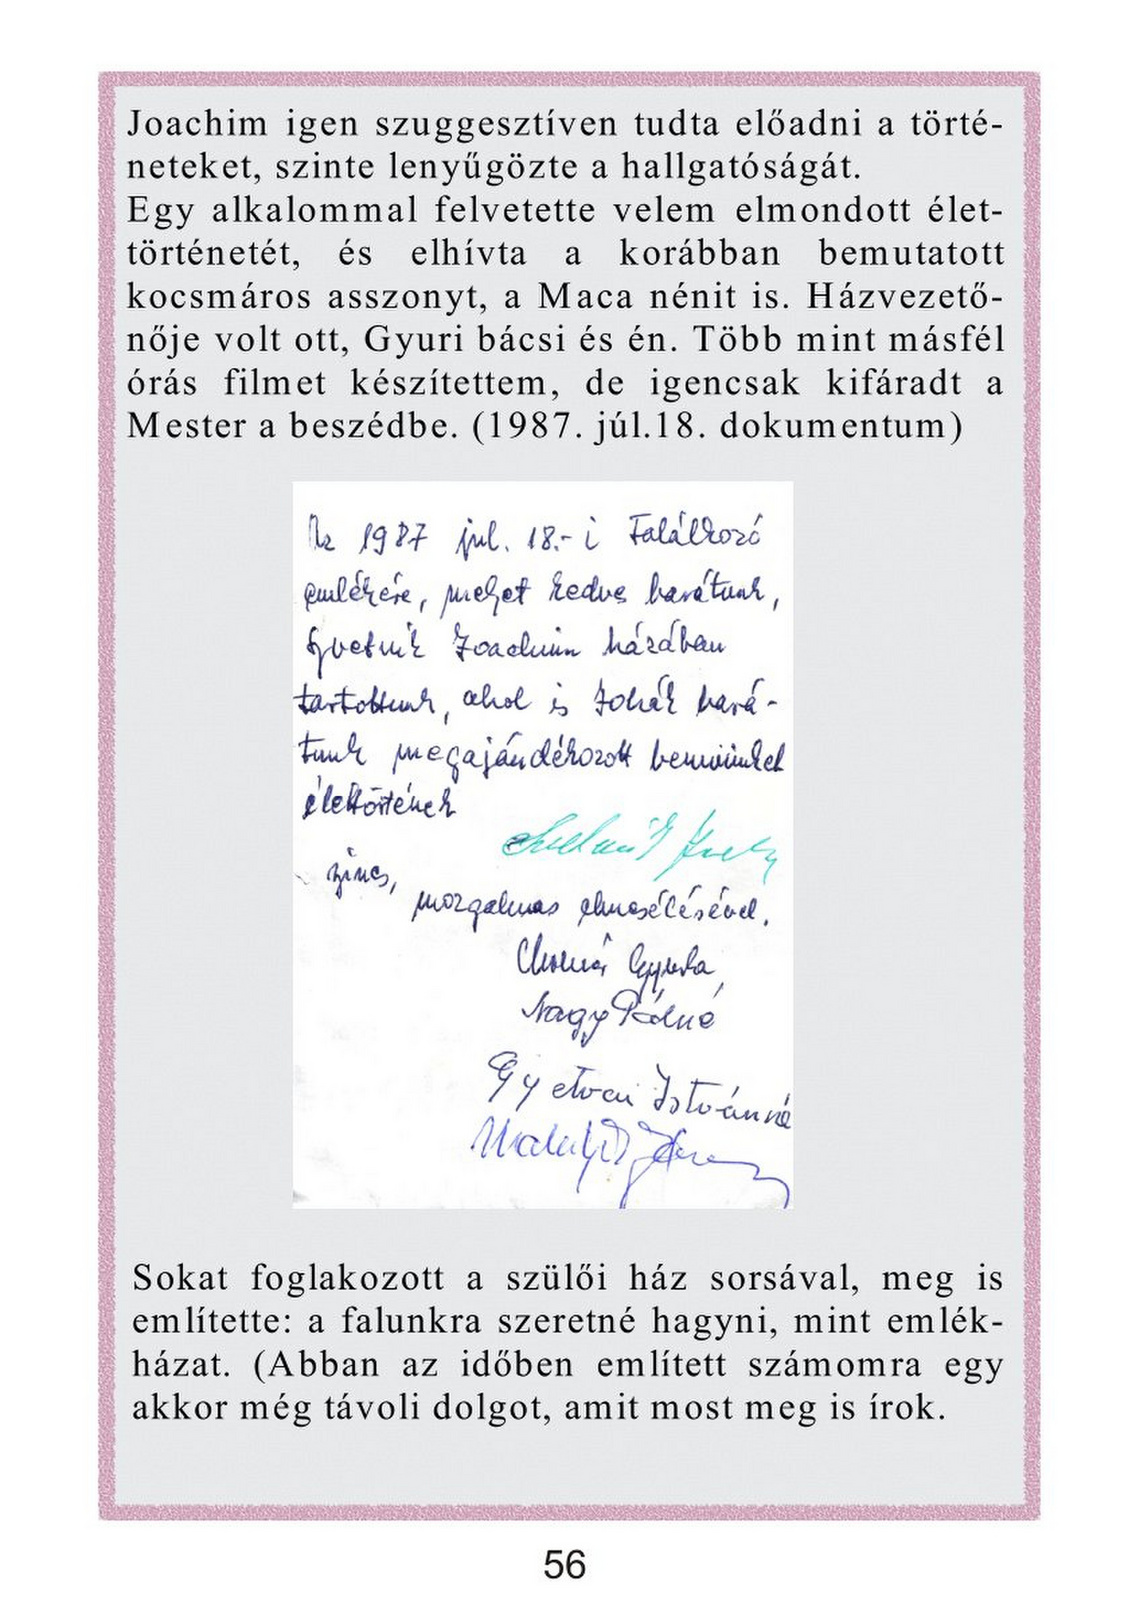 Joachim igen szuggesztíven tudta előadni a törté-
neteket, szinte lenyűgözte a hallgatóságát.
Egy alkalommal felvetette velem elmondott élet-
történetét, és elhívta a korábban bemutatott
kocsmáros asszonyt, a Maca nénit is. Házvezető-
nője volt ott, Gyuri bácsi és én. Több mint másfél
órás filmet készítettem, de igencsak kifáradt a
Mester a beszédbe. (1987. júl.18. dokumentum)
Az 1987 jul. 18.-i Találkozó
emlékére, melyet kedves barátunk,
Joachim házában
tartottunk, ahol is bará-
tunk megajándékozott bennünket
élettörtének
színes, mozgalmas elmesélésével.
Gyula,
Nagy Pálné
Gyetvai Istvánné
Sokat foglakozott a szülői ház sorsával, meg is
említette: a falunkra szeretné hagyni, mint emlék-
házat. (Abban az időben említett számomra egy
akkor még távoli dolgot, amit most meg is írok.
56